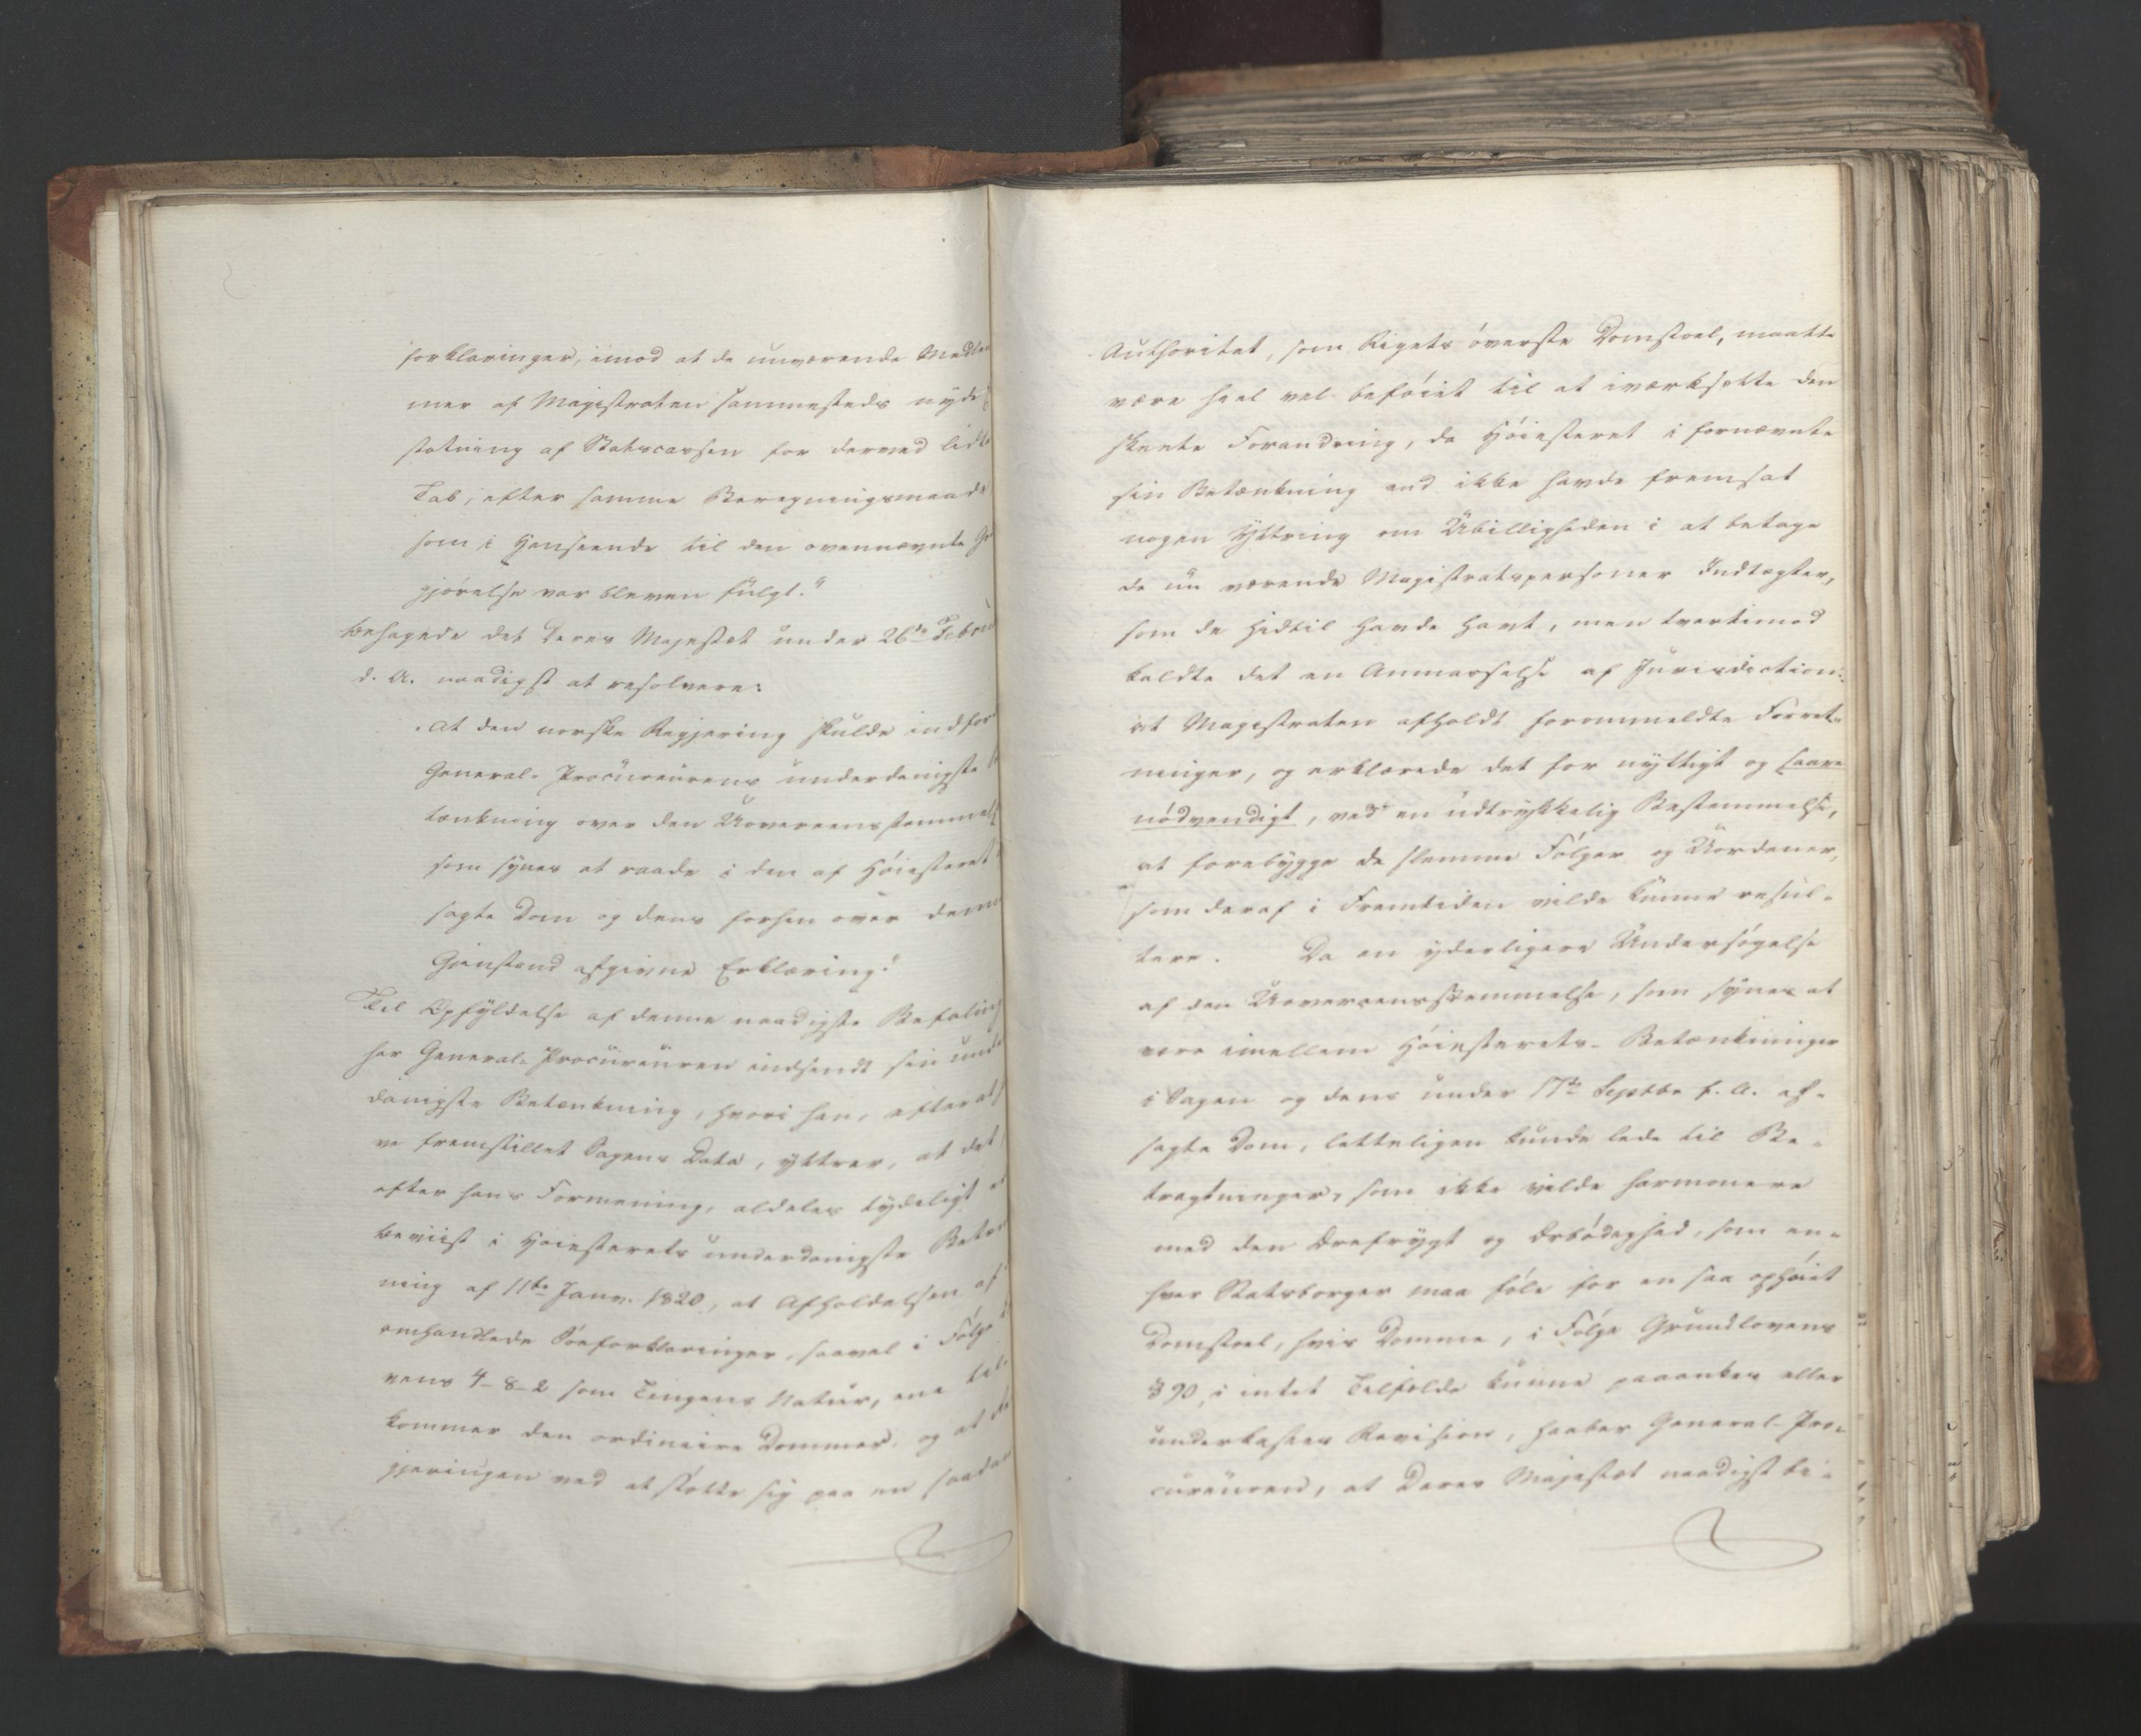 forklaringer, imod at de nuværende Medlem
mer af Magistraten sammesteds nyde
statning af Statscassen for derved lidt
Tab, efter samme Beregningsmaade
som i Henseende til den ovennævnte
gjørelse var bleven fulgt."
behagede det Deres Majestæt under 26de Febru
d. A. naadigst at resolvere:
"At den norske Regjering skulde indfor
General-Procureurens underdanigste
tænkning over den Uovereensstemmelse
som synes at raade i den af Høiesteret
sagte Dom og dens forhen over denne
Gjenstand afgivne Erklæring."
Til Opfyldelse af denne naadigste Befaling
har General-Procureuren indsendt sin unde
danigste Betænkning, hvori han, efter at
ve fremstillet Sagens Data, yttrer, at det
efter hans Formening, aldeles tydeligt er
beviist i Høiesterets underdanigste Betæn
ning af 11te Janv. 1820, at Afholdelsen af
omhandlede Søeforklaringer, saavel i Følge
vens 4-8-2 som Tingens Natur, ene til-
kommer den ordinaire Dommer, og at Re
gjeringen ved at støtte sig paa en saadan
Authoritet, som Rigets øverste Domstoel, maatte
være heel vel beføiet til at iværksætte den
skeete Forandring, da Høiesteret i fornævnte
sin Betænkning end ikke havde fremsat
nogen Yttring om Ubilligheden i at betage
de nu værende Magistratspersoner Indtægter,
som de hidtil havde havt, men tvertimod
kaldte det en Anmasselse af Jurisdiction,
at Magistraten afholdt forommeldte Forret-
ninger, og erklærede det for nyttigt og saare
nødvendigt, ved en udtrykkelig Bestemmelse,
at forebygge de slemme Følger og Uordener,
som deraf i Fremtiden vilde kunne resul-
tere. Da en yderligere Undersøgelse
af den Uovereensstemmelse, som synes at
være imellem Høiesterets-Betænkninger
i Sagen og dens under 17de Septbr f. A. af-
sagte Dom, letteligen kunde lede til Be-
tragtninger, som ikke vilde harmonere
med den Ærefrygt og Ærbødighed, som en-
hver Statsborger maa føle for en saa ophøiet
Domstoel, hvis Domme, i Følge Grundlovens
§ 90, i intet Tilfælde kunne paaankes eller
underkastes Revision, haaber General-Pro-
cureuren, at Deres Majestæt naadigst bi-